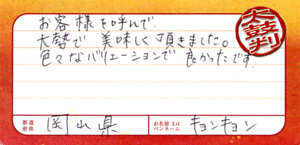 お客様を呼んで
大勢で 美味しく頂きました。
色々なバリエーションで 良かったです。
太鼓判
都道府県 岡山県
お名前又はペンネーム キョンキョン